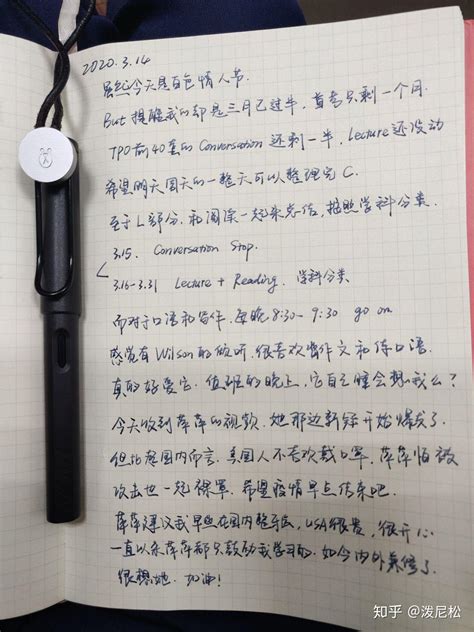 2020.3.14
虽然今天是白色情人节.
But 提醒我的却是三月已过半, 首考只剩一个月.
TPO前40套的 Conversation 还剩一半, Lecture 还没动
希望明天周天的一整天可以整理完 C.
至于L部分. 和阅读一起来总结, 按照学科分类.
3.15. Conversation Stop.
3.16-3.31 Lecture + Reading. 学科分类
而对于口语和写作, 每晚 8:30- 9:30 go on
感觉有Wilson的倾听. 很喜欢写作文和练口语.
真的好爱它. 值班的晚上, 它自己睡会想我么?
今天收到萍萍的视频. 她那边新冠开始爆发了.
但比起国内而言, 美国人不喜欢戴口罩, 萍萍怕被
攻击也一起裸罩. 希望疫情早点结束吧.
萍萍建议我早点在国内整牙齿, USA很贵, 很开心
一直以来萍萍都只鼓励我学习的. 如今内外兼修了.
很想她. 加油!
知乎 @泼尼松